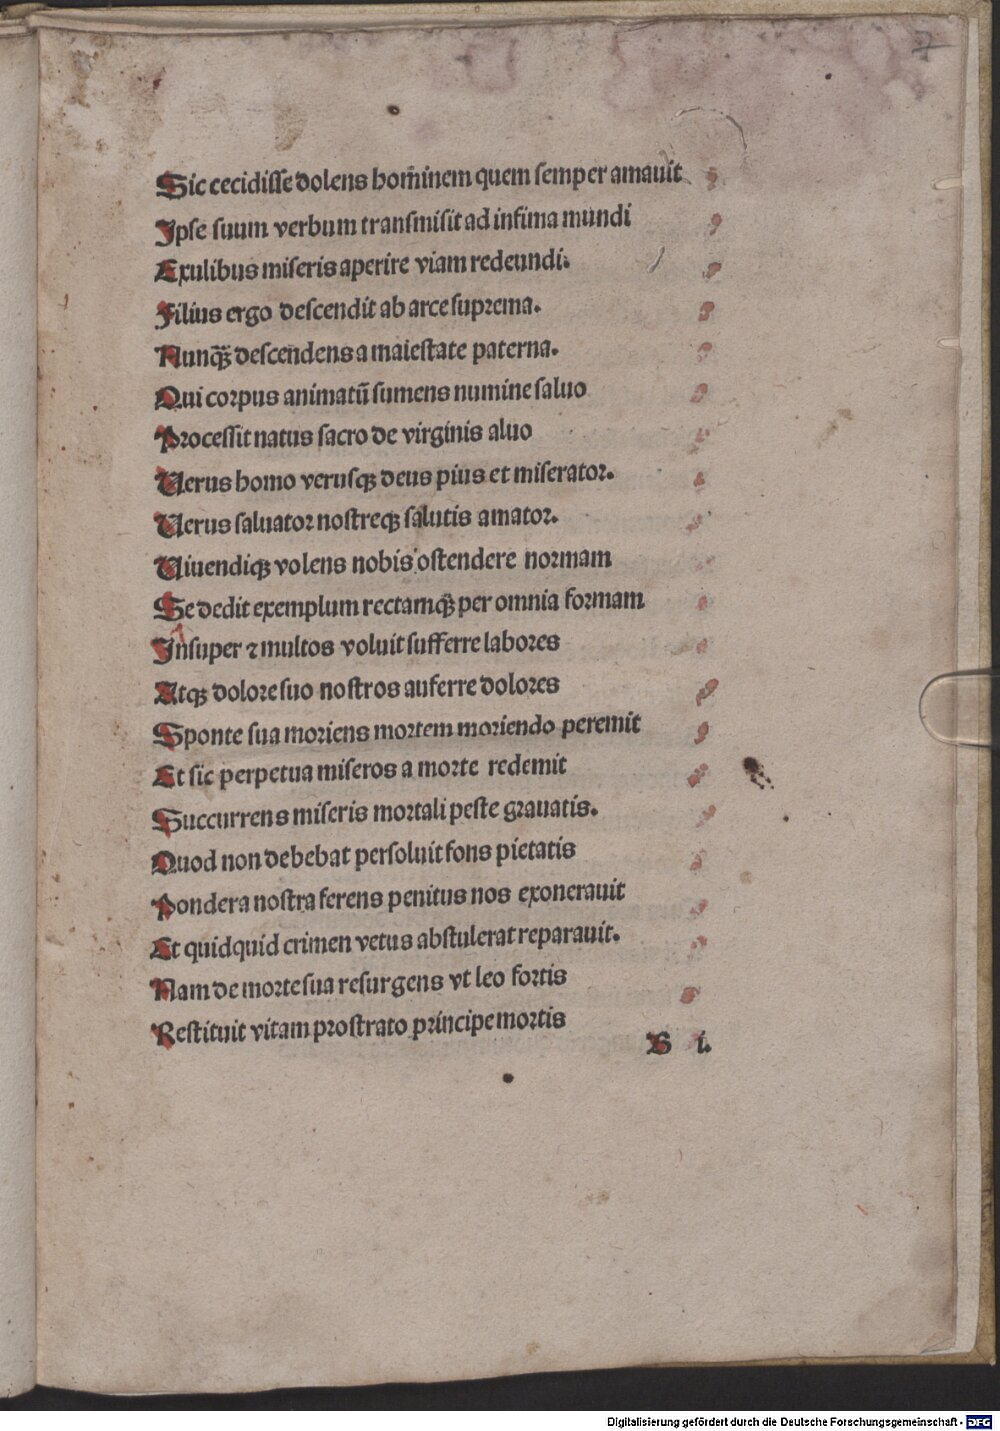 7
Sic cecidisse dolens hom̃inem quem semper amauit
Ipse suum verbum transmisit ad infima mundi
Exulibus miseris aperire viam redeundi.
Filius ergo descendit ab arce suprema.
Nunq̃ descendens a maiestate paterna.
Qui corpus animatũ sumens numine saluo
Processit natus sacro de virginis aluo
Uerus homo verusqꝫ deus pius et miserator.
Uerus saluator nostreqꝫ salutis amator.
Uiuendiqꝫ volens nobis ostendere normam
Se dedit exemplum rectamqꝫ per omnia formam
Insuper ⁊ multos voluit sufferre labores
Atqꝫ dolore suo nostros auferre dolores
Sponte sua moriens mortem moriendo peremit
Et sic perpetua miseros a morte redemit
Succurrens miseris mortali peste grauatis.
Quod non debebat persoluit fons pietatis
Pondera nostra ferens penitus nos exonerauit
Et quidquid crimen vetus abstulerat reparauit.
Nam de morte sua resurgens vt leo fortis
Restituit vitam prostrato principe mortis
B i.
Digitalisierung gefördert durch die Deutsche Forschungsgemeinschaft - DFG